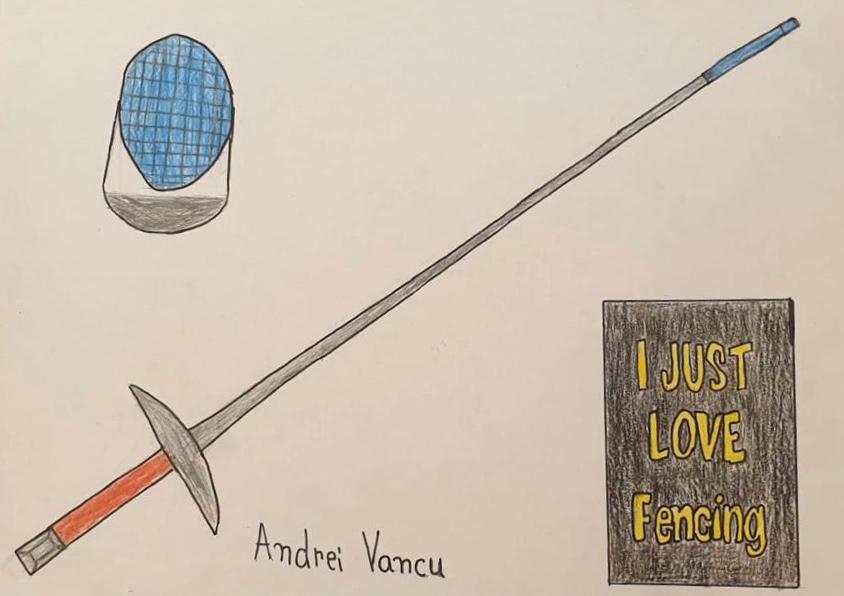 I JUST
LOVE
Fencing
Andrei Vancu